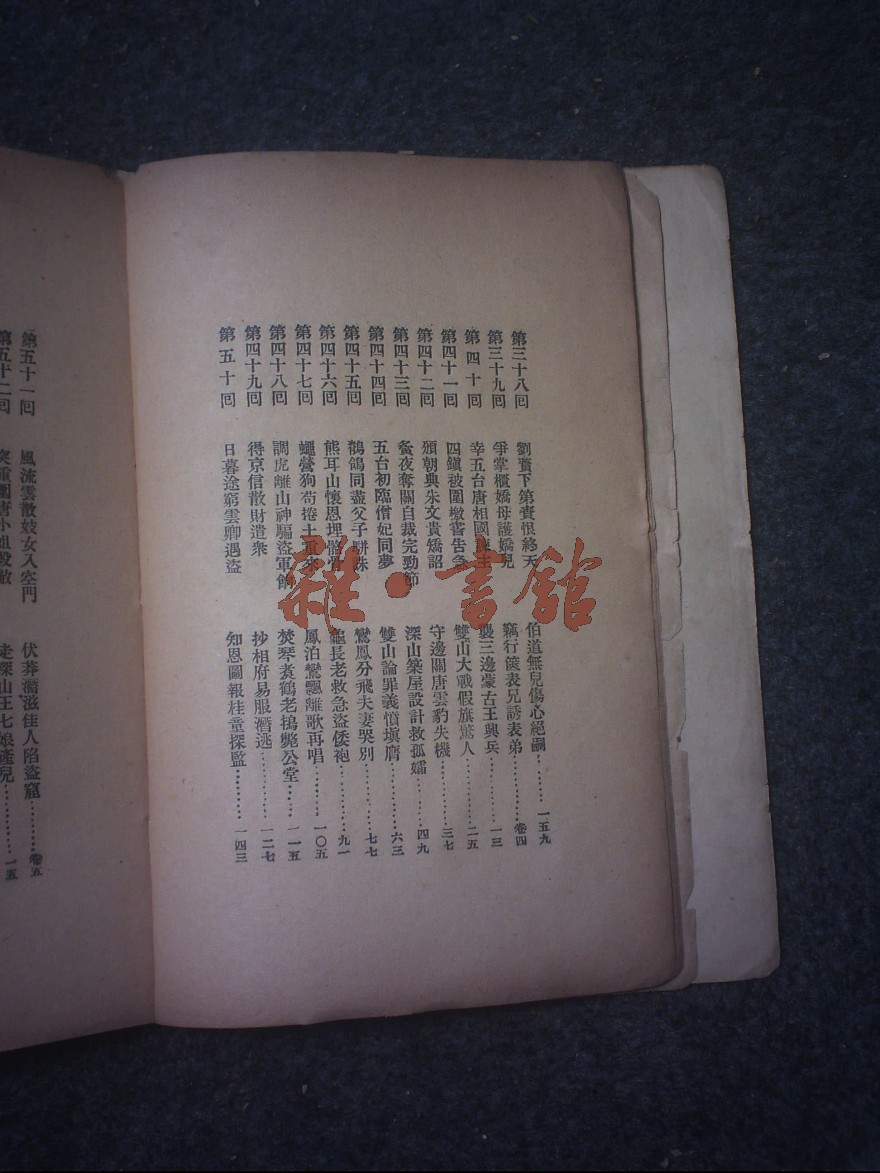 第三十八回 劉蕡下第賚恨終天 伯道無兒傷心絕嗣………一五九
第三十九回 爭掌櫃嬌母護嬌兒 竊行篋表兄誘表弟………卷四
第四十回 幸五台唐相國 主 襲三邊蒙古王興兵………一三
第四十一回 四鎭被圍墩 吿急 雙山大戰假旗驚人………二五
第四十二回 頒朝典朱文貴矯詔 守邊關唐雲豹失機………三七
第四十三回 夤夜奪關自裁完勁節 深山築屋設計救孤孀………四九
第四十四回 五台初臨僧妃同夢 雙山論罪義憤塡膺………六三
第四十五回 鶺鴒同盡父子駢誅 鸞鳳分飛夫妻哭別………七七
第四十六回 熊耳山懷恩埋髂骨 龜長老救急盜倭袍………九一
第四十七回 蠅營狗苟捲土重來 鳳泊鸞飄離歌再唱………一〇五
第四十八回 調虎離山神騙盜軍餉 焚琴煑鶴老搗斃公堂………一一五
第四十九回 得京信散財遣衆 抄相府易服潛逃………一二七
第五十回 日暮途窮雲卿遇盜 知恩圖報桂童探監………一四三
第五十一回 風流雲散妓女入空門 伏莽潛滋佳人陷盜窟………卷五
第五十二回 突重圍唐小姐 走深山王七娘產兒………一五
雜·書館